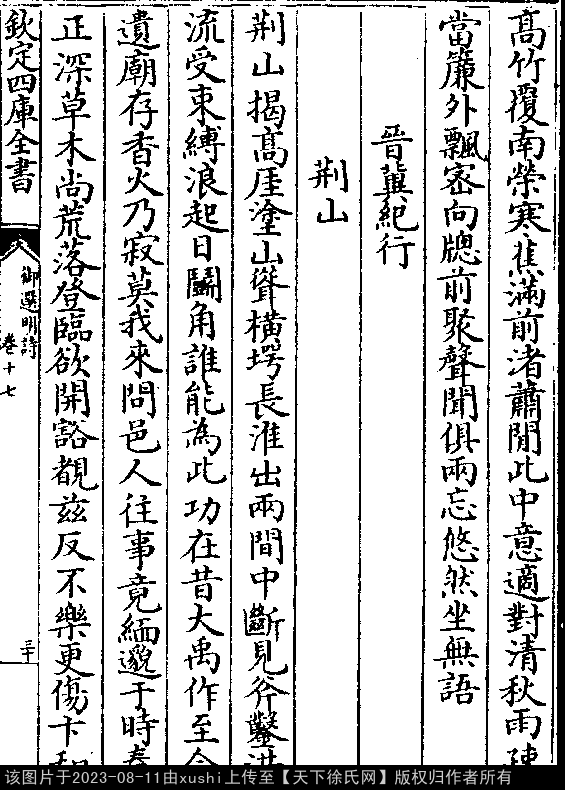 髙竹覆南榮寒蕉滿前渚蕭閒此中意適對清秋雨
當簾外飄密向牕前聚聲聞俱兩忘悠然坐無語
晉冀紀行
荆山
荆山揭髙厓塗山聳橫堮長淮出兩間中斷見斧鑿
流受束縛浪起日鬭角誰能為此功在昔大禹作至今
遺廟存香火乃寂莫我來問邑人往事竟緬邈于時春
正深草木尚荒落登臨欲開豁覩兹反不樂更傷卞和
欽定四庫全書
御選明詩
卷十七
三十
该图片于2023-08-11由xushi上传至【天下徐氏网】版权归作者所有